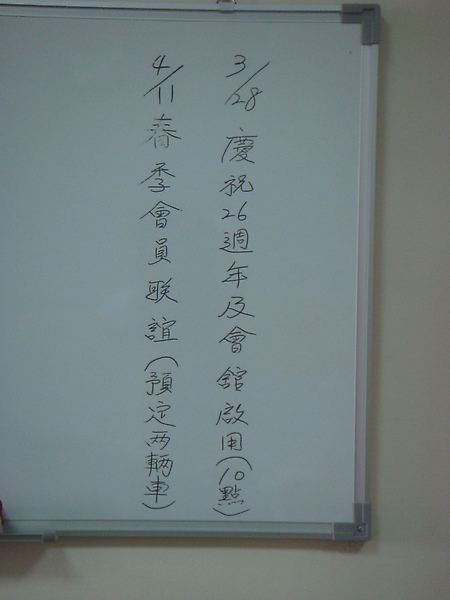 3/28 慶祝26週年及會館啟用(10點)
4/11 春季會員联誼(預定两輌車)